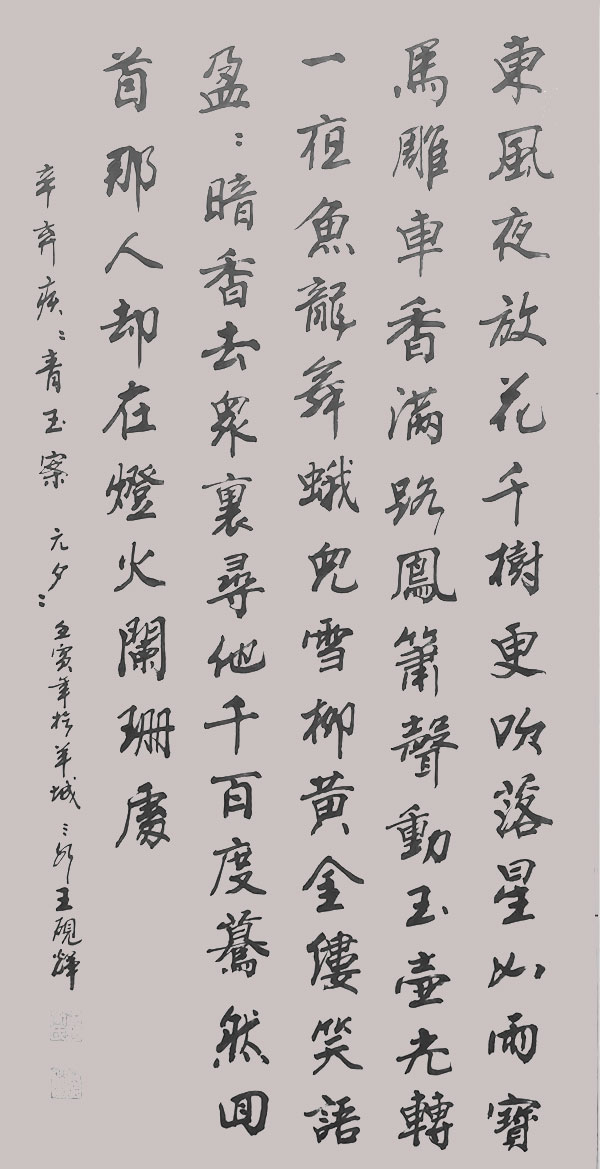 東風夜放花千樹更吹落星如雨寶
馬雕車香滿路鳳簫聲動玉壺光轉
一夜魚龍舞蛾兒雪柳黄金縷笑語
盈々暗香去眾裏尋他千百度驀然回
首那人却在燈火闌珊處
辛弃疾：青玉案 元夕：壬寅年於羊城 王硯輝